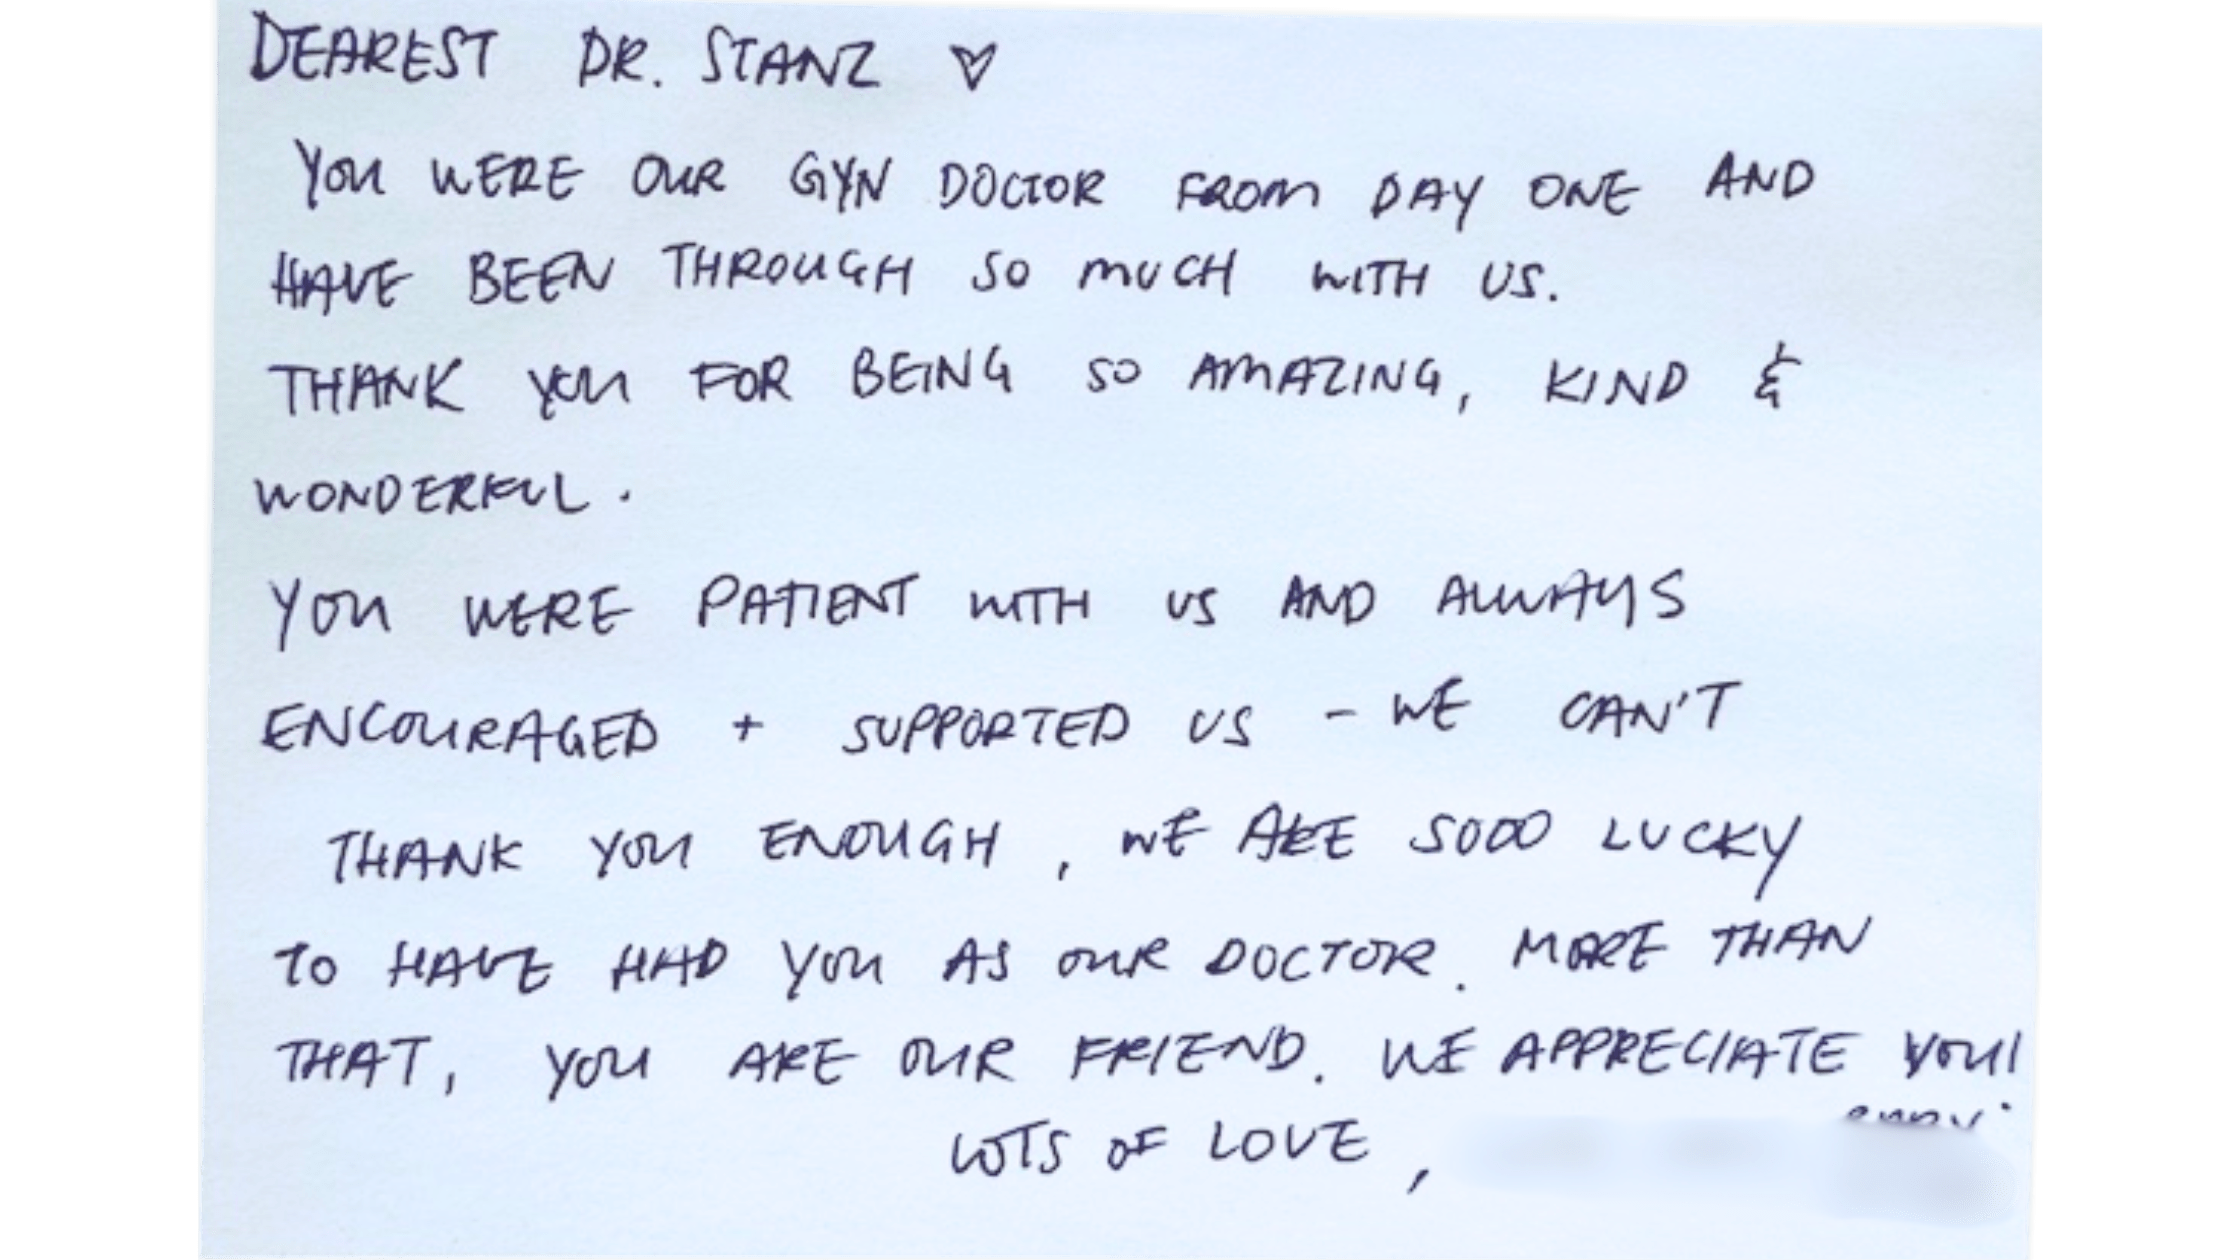 DEAREST DR. STANZ ♡
YOU WERE OUR GYN DOCTOR FROM DAY ONE AND
HAVE BEEN THROUGH SO MUCH WITH US.
THANK YOU FOR BEING SO AMAZING, KIND &
WONDERFUL.
YOU WERE PATIENT WITH US AND ALWAYS
ENCOURAGED + SUPPORTED US - WE CAN'T
THANK YOU ENOUGH, WE ARE SOOO LUCKY
TO HAVE HAD YOU AS OUR DOCTOR. MORE THAN
THAT, YOU ARE OUR FRIEND. WE APPRECIATE YOU!
LOTS OF LOVE,